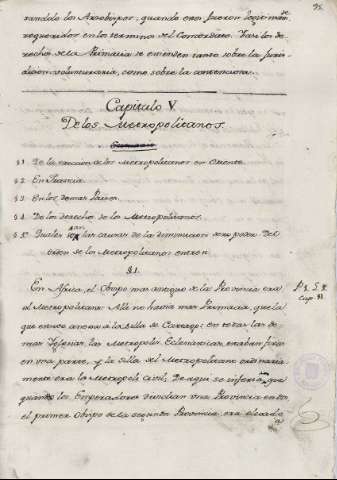 95.
rando los Arzobispos, quando eran legitimam.te
requeridos en los terminos del Concordato. Pasi los de-
rechos de la Primacia se entienden tanto sobre la Juris-
dicion voluntaria, como sobre la contenciosa.
Capitulo V.
De los Metropolitanos.
§ 1. De la ereccion de los Metropolitanos en Oriente.
§ 2. En Francia.
§ 3. En los demas Paises.
§ 4. De los derechos de los Metropolitanos.
§ 5. Quales son las causas de la diminucion de su poder. Del
de los Metropolitanos
§ 1.
En Africa, el Obispo mas antiguo de la Provincia era
el Metropolitano. Alli no havia mas Primacia, que la
que estuvo anexa a la Silla de Cartago: en todas las de-
mas Iglesias, las Metropolis Eclesiasticas, estaban fixas
en una parte, y la Silla del Metropolitano ordinaria-
mente era la Metropoli Civil. De aqui se inferia, que
quando los Emperadores dividian una Provincia en dos,
el primer Obispo de la segunda Provincia era elevado
P. 1. §. 8.
Cap. 31.